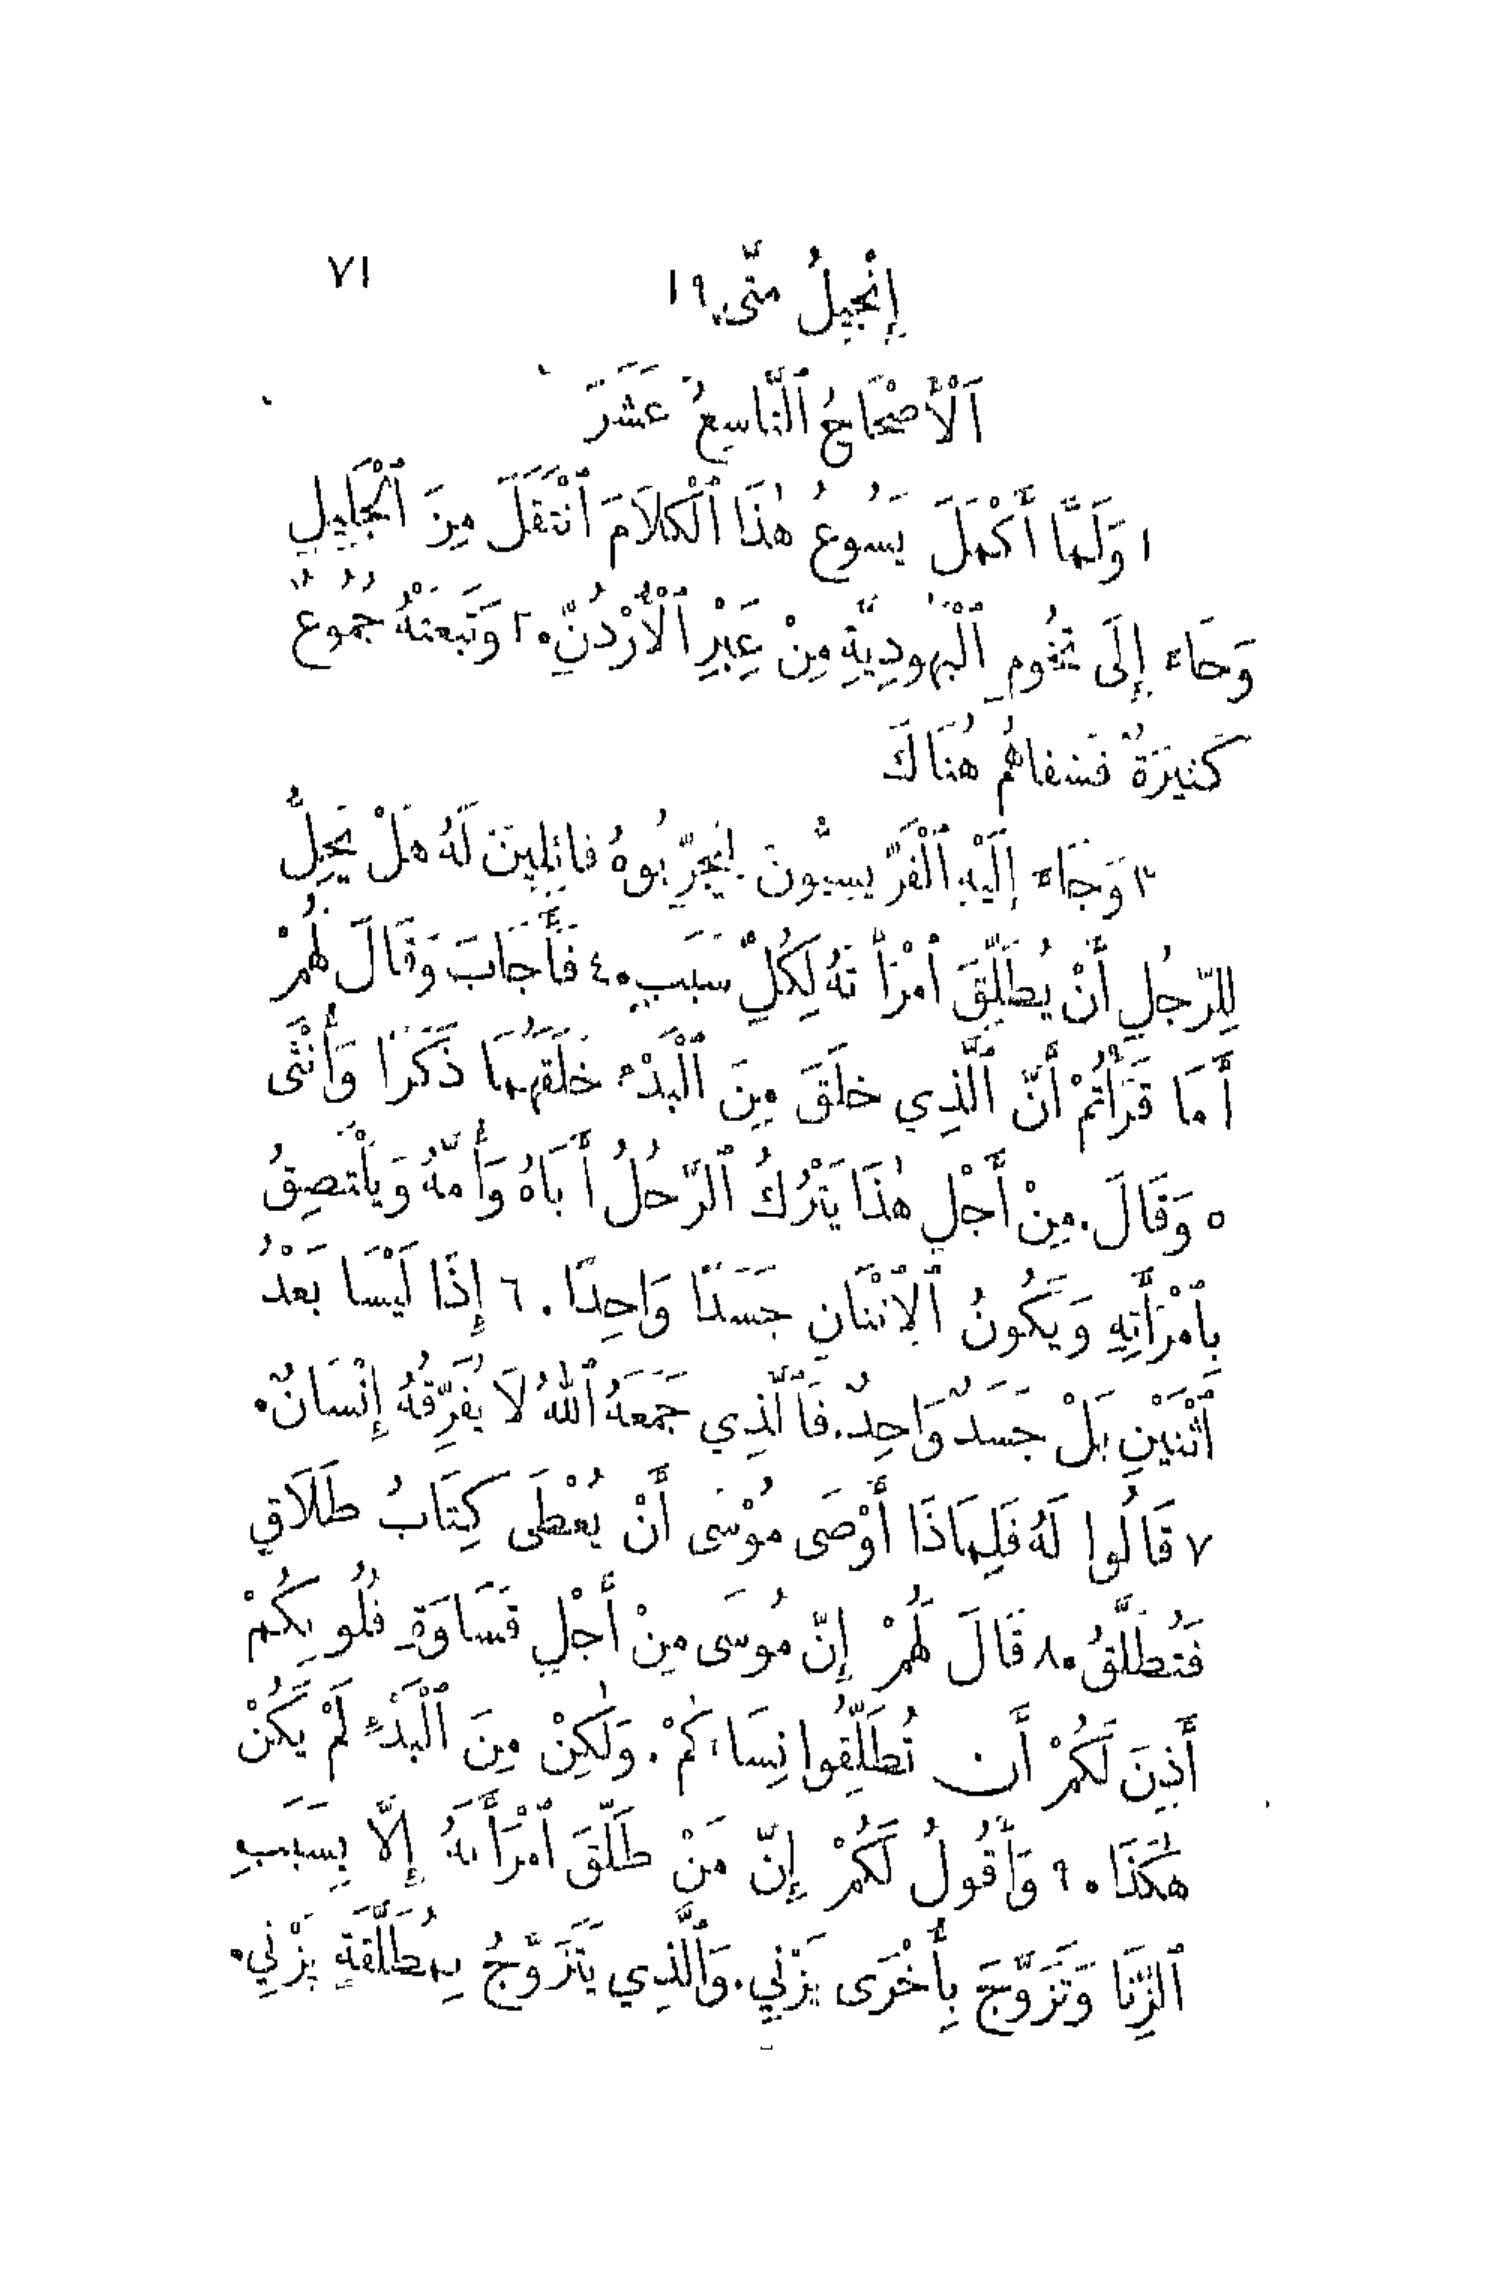 إِنْجِيلُ مَتَّى ١٩ ٧١
اَلْأَصْحَاحُ ٱلتَّاسِعُ عَشَرَ
١ وَلَمَّا أَكْمَلَ يَسُوعُ هٰذَا ٱلْكَلَامَ ٱنْتَقَلَ مِنَ ٱلْجَلِيلِ
وَجَاءَ إِلَى تُخُومِ ٱلْيَهُودِيَّةِ مِنْ عِبْرِ ٱلْأُرْدُنِّ. ٢ وَتَبِعَتْهُ جُمُوعٌ
كَثِيرَةٌ فَشَفَاهُمْ هُنَاكَ
٣ وَجَاءَ إِلَيْهِ ٱلْفَرِّيسِيُّونَ لِيُجَرِّبُوهُ قَائِلِينَ لَهُ هَلْ يَحِلُّ
لِلرَّجُلِ أَنْ يُطَلِّقَ ٱمْرَأَتَهُ لِكُلِّ سَبَبٍ. ٤ فَأَجَابَ وَقَالَ لَهُمْ
أَمَا قَرَأْتُمْ أَنَّ ٱلَّذِي خَلَقَ مِنَ ٱلْبَدْءِ خَلَقَهُمَا ذَكَرًا وَأُنْثَى
٥ وَقَالَ. مِنْ أَجْلِ هٰذَا يَتْرُكُ ٱلرَّجُلُ أَبَاهُ وَأُمَّهُ وَيَلْتَصِقُ
بِٱمْرَأَتِهِ وَيَكُونُ ٱلِٱثْنَانِ جَسَدًا وَاحِدًا. ٦ إِذًا لَيْسَا بَعْدُ
ٱثْنَيْنِ بَلْ جَسَدٌ وَاحِدٌ. فَٱلَّذِي جَمَعَهُ ٱللهُ لَا يُفَرِّقُهُ إِنْسَانٌ.
٧ قَالُوا لَهُ فَلِمَاذَا أَوْصَى مُوْسَى أَنْ يُعْطَى كِتَابُ طَلَاقٍ
فَتُطَلَّقُ. ٨ قَالَ لَهُمْ إِنَّ مُوسَى مِنْ أَجْلِ قَسَاوَةِ قُلُوبِكُمْ
أَذِنَ لَكُمْ أَن تُطَلِّقُوا نِسَاءَكُمْ. وَلٰكِنْ مِنَ ٱلْبَدْءِ لَمْ يَكُنْ
هٰكَذَا. ٩ وَأَقُولُ لَكُمْ إِنَّ مَنْ طَلَّقَ ٱمْرَأَتَهُ إِلَّا بِسَبَبِ
ٱلزِّنَا وَتَزَوَّجَ بِأُخْرَى يَزْنِي. وَٱلَّذِي يَتَزَوَّجُ بِمُطَلَّقَةٍ يَزْنِي.